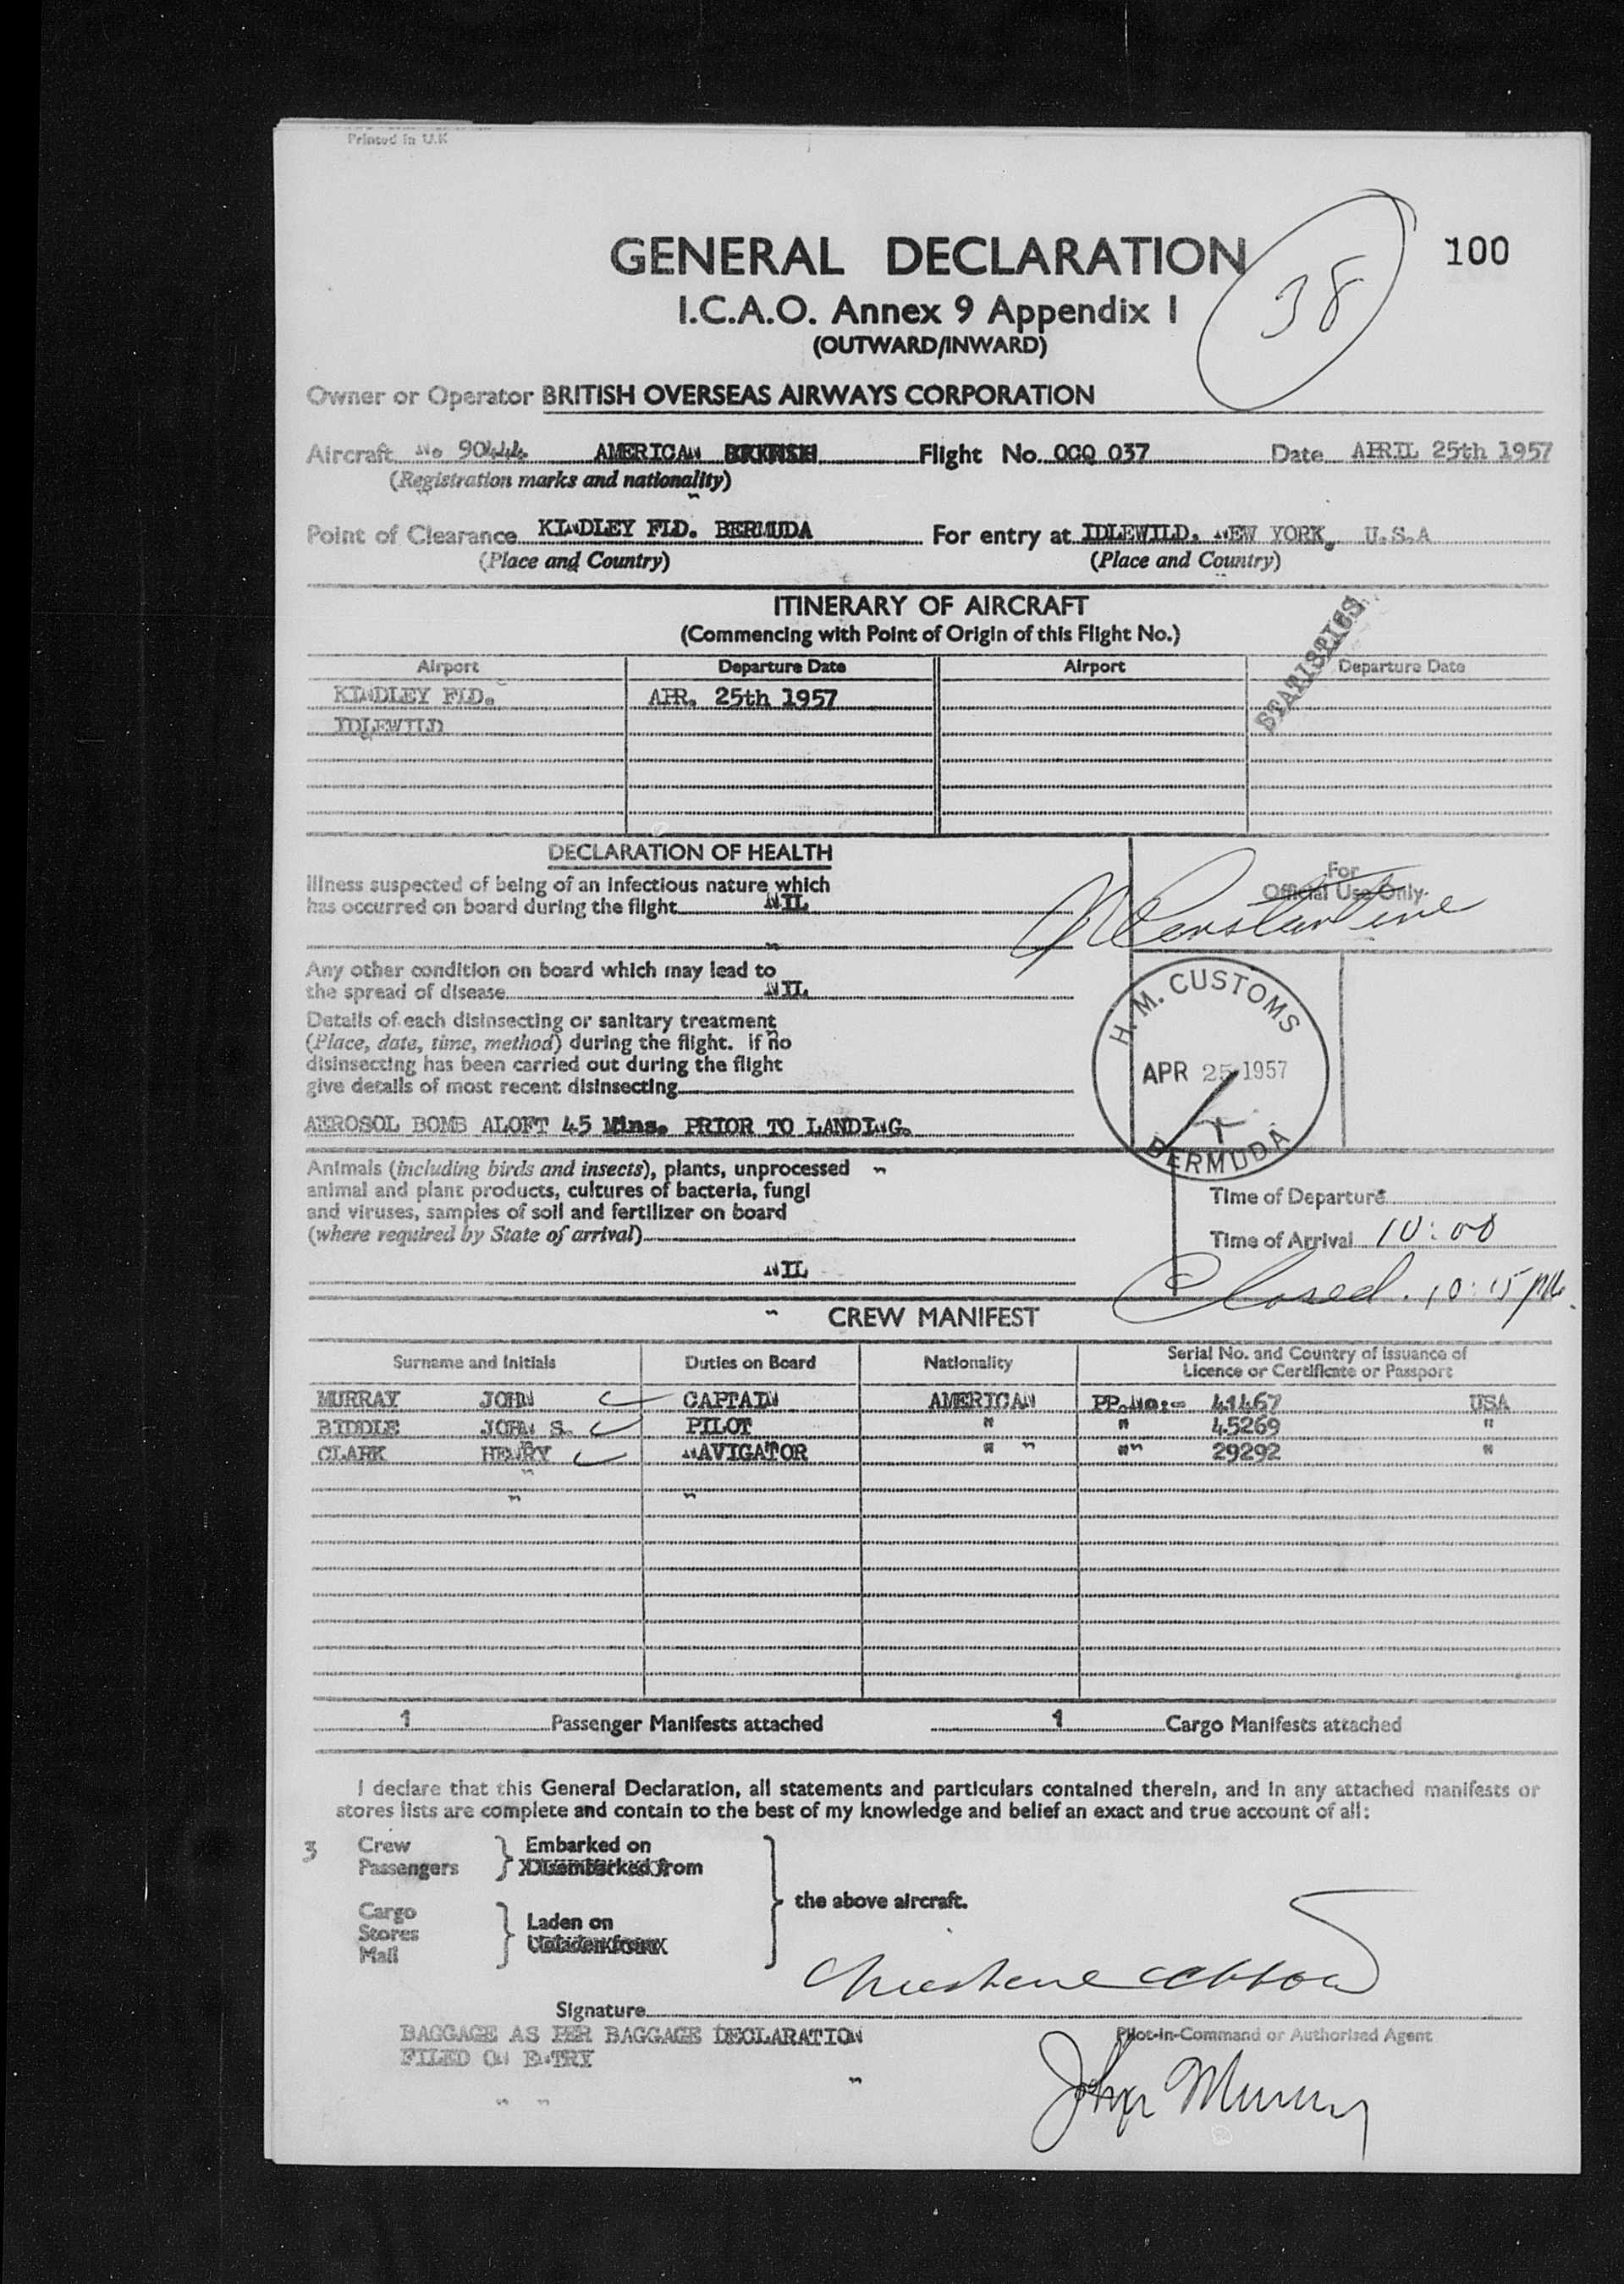 Printed in U.K
GENERAL DECLARATION
100
38
I.C.A.O. Annex 9 Appendix 1
(OUTWARD/INWARD)
Owner or Operator BRITISH OVERSEAS AIRWAYS CORPORATION
Aircraft No 90444 AMERICAN BRITISH Flight No. OCQ 037 Date APRIL 25th 1957
(Registration marks and nationality)
Point of Clearance KINDLEY FLD. BERMUDA For entry at IDLEWILD. NEW YORK, U.S.A
(Place and Country) (Place and Country)
ITINERARY OF AIRCRAFT
(Commencing with Point of Origin of this Flight No.)
STATISTICS
Airport Departure Date Airport Departure Date
KINDLEY FLD. APR. 25th 1957
IDLEWILD
DECLARATION OF HEALTH
For
Official Use Only
Illness suspected of being of an infectious nature which
has occurred on board during the flight NIL
Constantine
Any other condition on board which may lead to
the spread of disease NIL
Details of each disinsecting or sanitary treatment
(Place, date, time, method) during the flight. If no
disinsecting has been carried out during the flight
give details of most recent disinsecting
AEROSOL BOMB ALOFT 45 Mins. PRIOR TO LANDING.
H. M. CUSTOMS
APR 25 1957
BERMUDA
Animals (including birds and insects), plants, unprocessed
animal and plant products, cultures of bacteria, fungi
and viruses, samples of soil and fertilizer on board
(where required by State of arrival)
NIL
Time of Departure
Time of Arrival 10:00
Closed. 10:15 PM.
CREW MANIFEST
Surname and Initials Duties on Board Nationality Serial No. and Country of issuance of
Licence or Certificate or Passport
MURRAY JOHN CAPTAIN AMERICAN PP.No:- 41467 USA
BIDDLE JOHN S. PILOT " " 45269 "
CLARK HENRY NAVIGATOR " " 29292 "
1 Passenger Manifests attached 1 Cargo Manifests attached
I declare that this General Declaration, all statements and particulars contained therein, and in any attached manifests or
stores lists are complete and contain to the best of my knowledge and belief an exact and true account of all:
3 Crew Embarked on
Passengers Disembarked from
the above aircraft.
Cargo
Stores Laden on
Mail Unladen from
Signature
BAGGAGE AS PER BAGGAGE DECLARATION
FILED ON ENTRY
Pilot-in-Command or Authorised Agent
John Murray